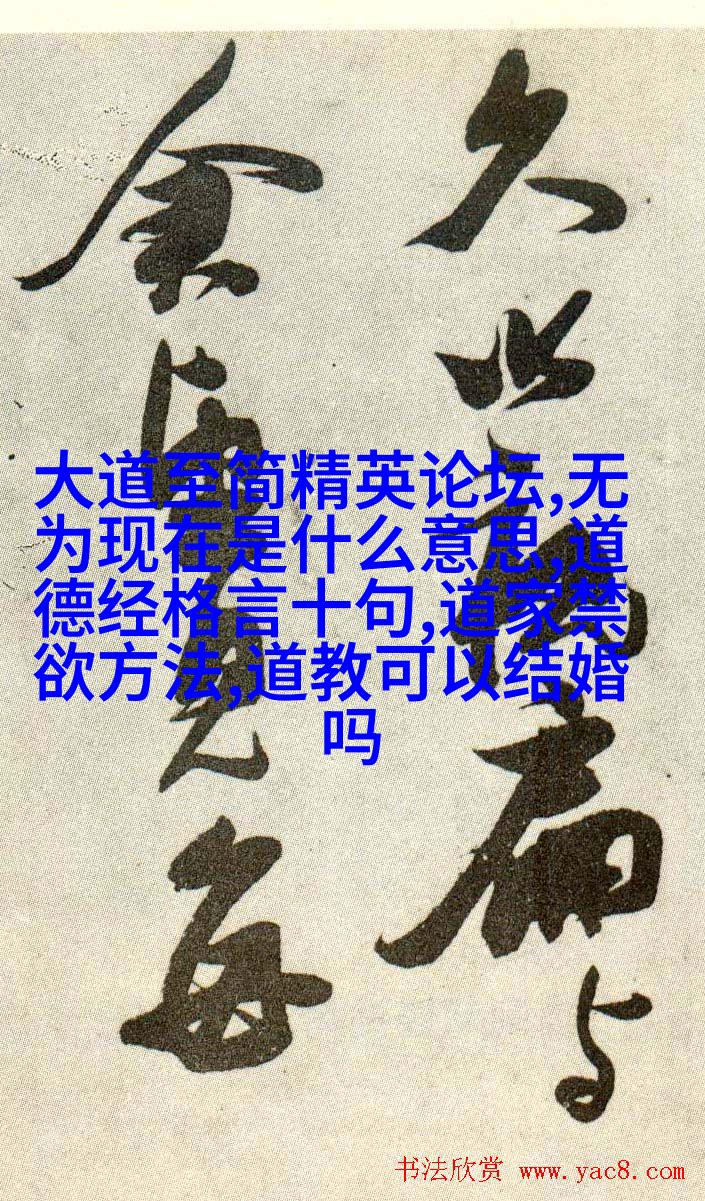 久此病扁与
余漫見每
大道至简精英论坛,无
为现在是什么意思,道
德经格言十句,道家禁
欲方法,道教可以结婚
吗
书法欣赏 www.yac8.com